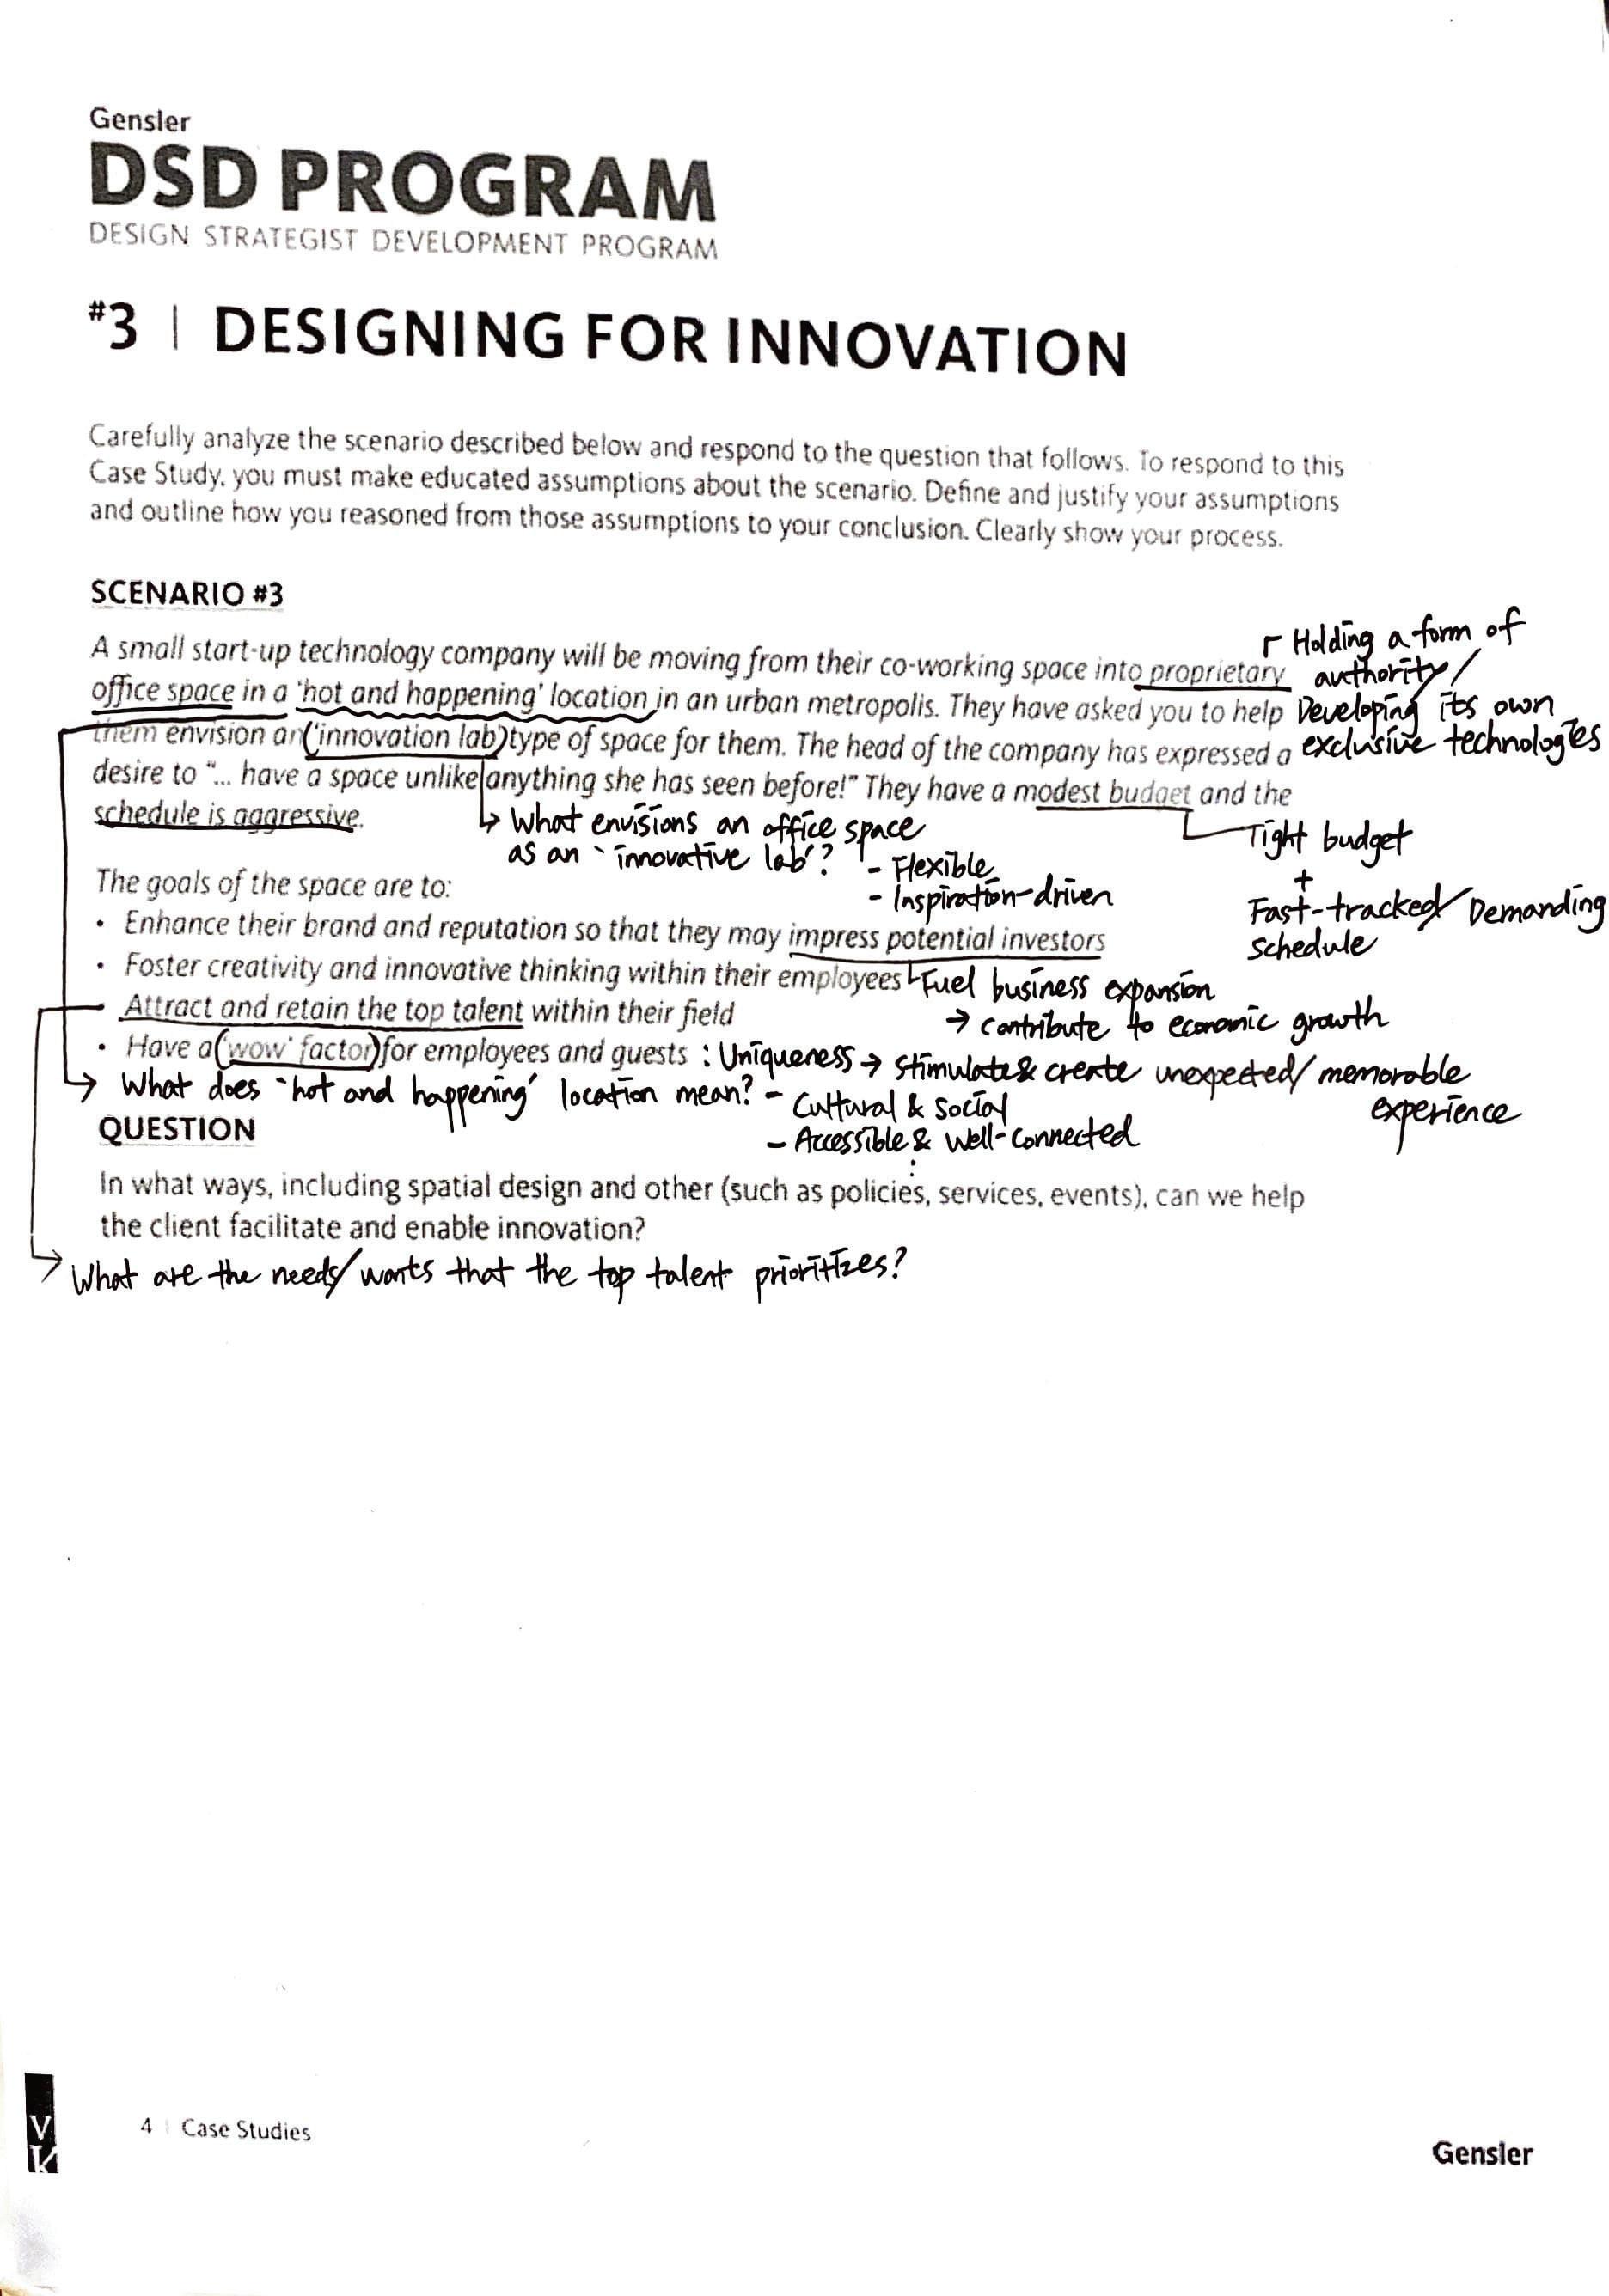 Gensler
DSD PROGRAM
DESIGN STRATEGIST DEVELOPMENT PROGRAM
#3 | DESIGNING FOR INNOVATION
Carefully analyze the scenario described below and respond to the question that follows. To respond to this
Case Study, you must make educated assumptions about the scenario. Define and justify your assumptions
and outline how you reasoned from those assumptions to your conclusion. Clearly show your process.
SCENARIO #3
A small start-up technology company will be moving from their co-working space into proprietary
office space in a 'hot and happening' location in an urban metropolis. They have asked you to help
them envision an 'innovation lab' type of space for them. The head of the company has expressed a
desire to "... have a space unlike anything she has seen before!" They have a modest budget and the
schedule is aggressive.
Holding a form of
authority/
Developing its own
exclusive technologies
What envisions an office space
as an 'innovative lab'?
- Flexible
- Inspiration-driven
Tight budget
+
Fast-tracked/Demanding
schedule
The goals of the space are to:
• Enhance their brand and reputation so that they may impress potential investors
• Foster creativity and innovative thinking within their employees
Fuel business expansion
→ contribute to economic growth
• Attract and retain the top talent within their field
• Have a 'wow' factor for employees and guests : Uniqueness → stimulate & create unexpected/memorable
experience
What does 'hot and happening' location mean? - Cultural & social
- Accessible & Well-connected
⋮
QUESTION
In what ways, including spatial design and other (such as policies, services, events), can we help
the client facilitate and enable innovation?
What are the needs/wants that the top talent prioritizes?
V
K
4 | Case Studies
Gensler